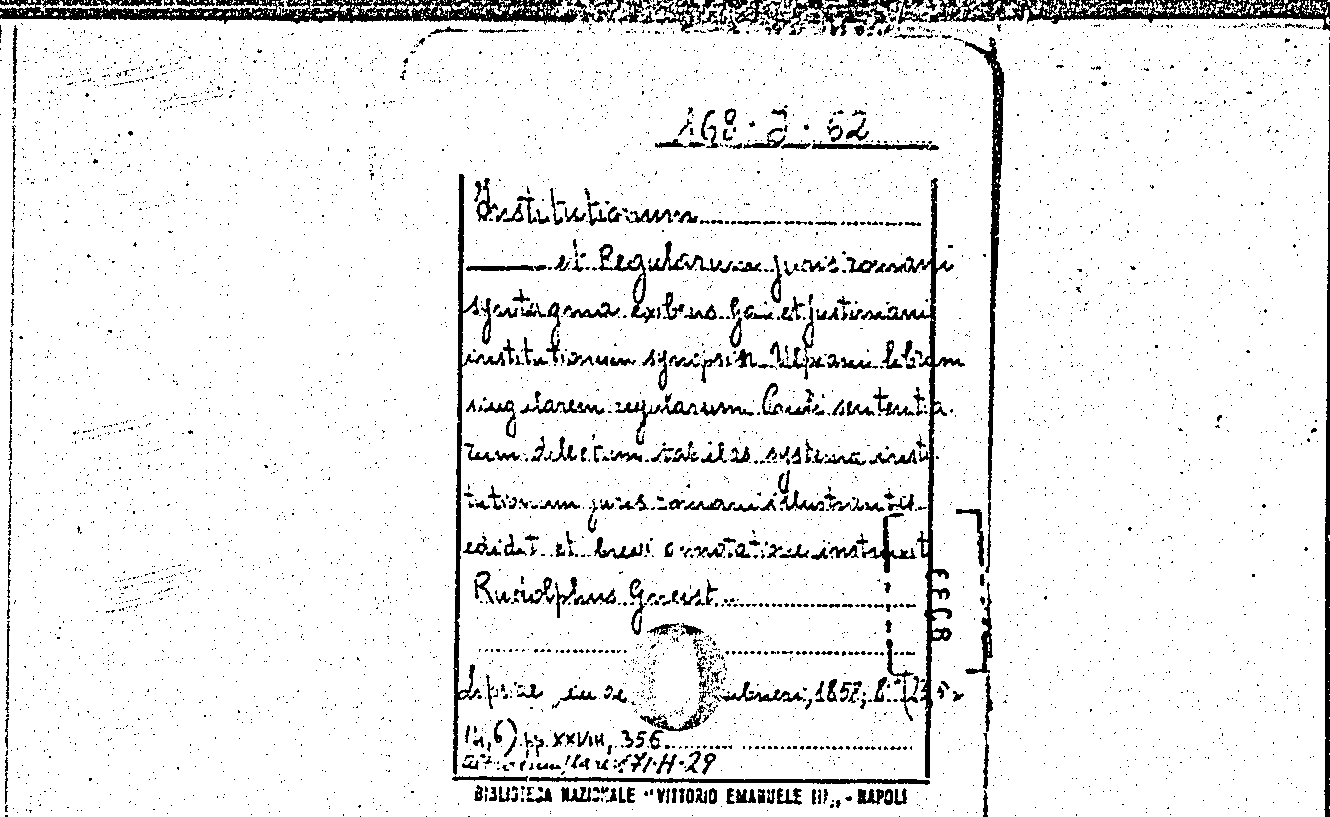 168. J. 62
Institutionum
et Regularum juris romani
syntagma exibens Gai et Justiniani
institutionum synopsin Ulpiani librum
singularem regularum Pauli sententia-
rum delectum tabulas systema insti-
tutionum juris romani illustrantes
edidit et brevi annotatione instruxit
Rudolphus Gneist
Lipsiae, in ae ubneri, 1857, 8° (23,5 x
14,6) pp. XXVIII, 356
altro esemplare: 171-H-29
BIBLIOTECA NAZIONALE "VITTORIO EMANUELE III„ - NAPOLI